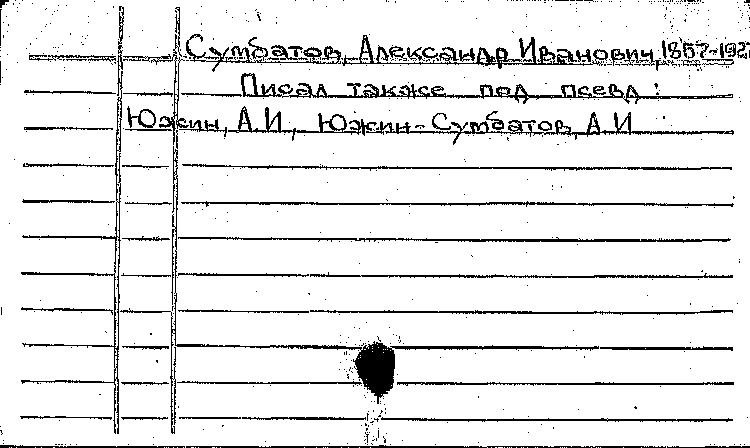 Сумбатов, Александр Иванович, 1857-1927
Писал также под псевд:
Южин, А.И., Южин-Сумбатов, А.И